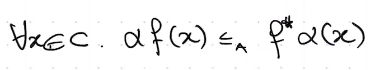 ∀x∈C. αf(x) ≤_A f^# α(x)